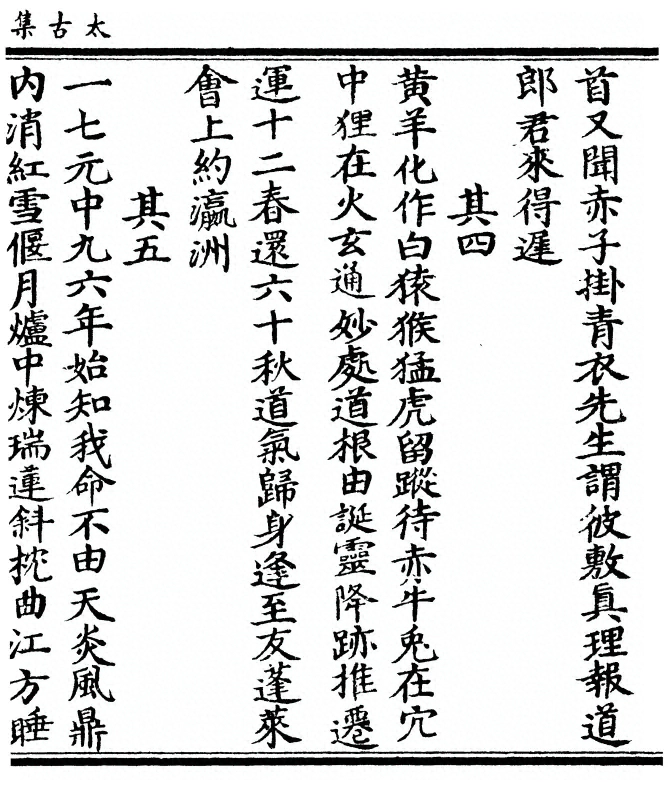 太古集
首又聞赤子掛青衣先生謂彼敷眞理報道
郎君來得遲
其四
黃羊化作白猿猴猛虎留蹤待赤牛兔在穴
中狸在火玄通妙處道根由誕靈降跡推遷
運十二春還六十秋道氣歸身逢至友蓬萊
會上約瀛洲
其五
一七元中九六年始知我命不由天炎風鼎
內消紅雪偃月爐中煉瑞蓮斜枕曲江方睡